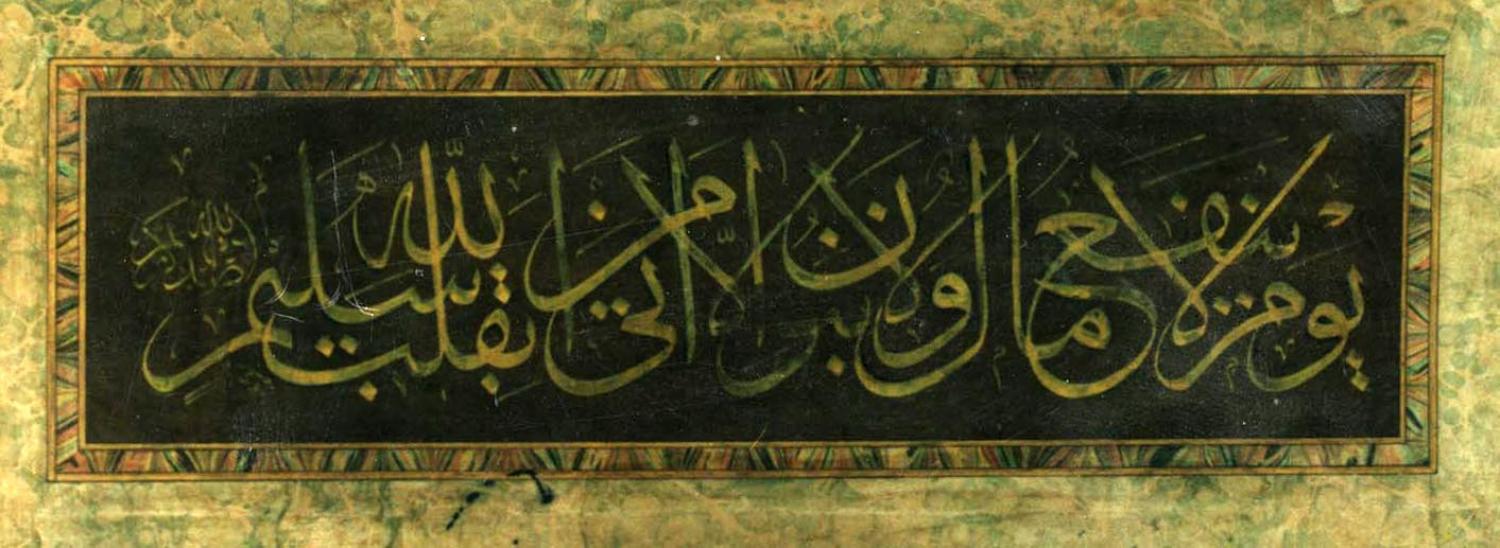 يوم لا ينفع مال ولا بنون الا من اتى الله بقلب سليم
صدق الله الكريم